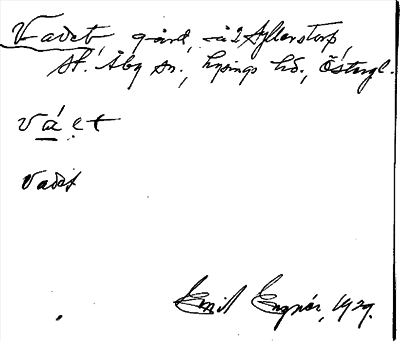 Vadet, gård, å 2 Ållerstorp,
St. Åby sn., Lysings hd., Östergl.
vá̱ et
Vadet
Emil Engnér, 1929.